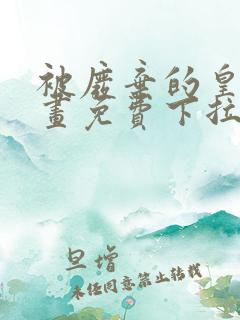 被废弃的皇
畫免費下拉
旦增
未经同意禁止转载